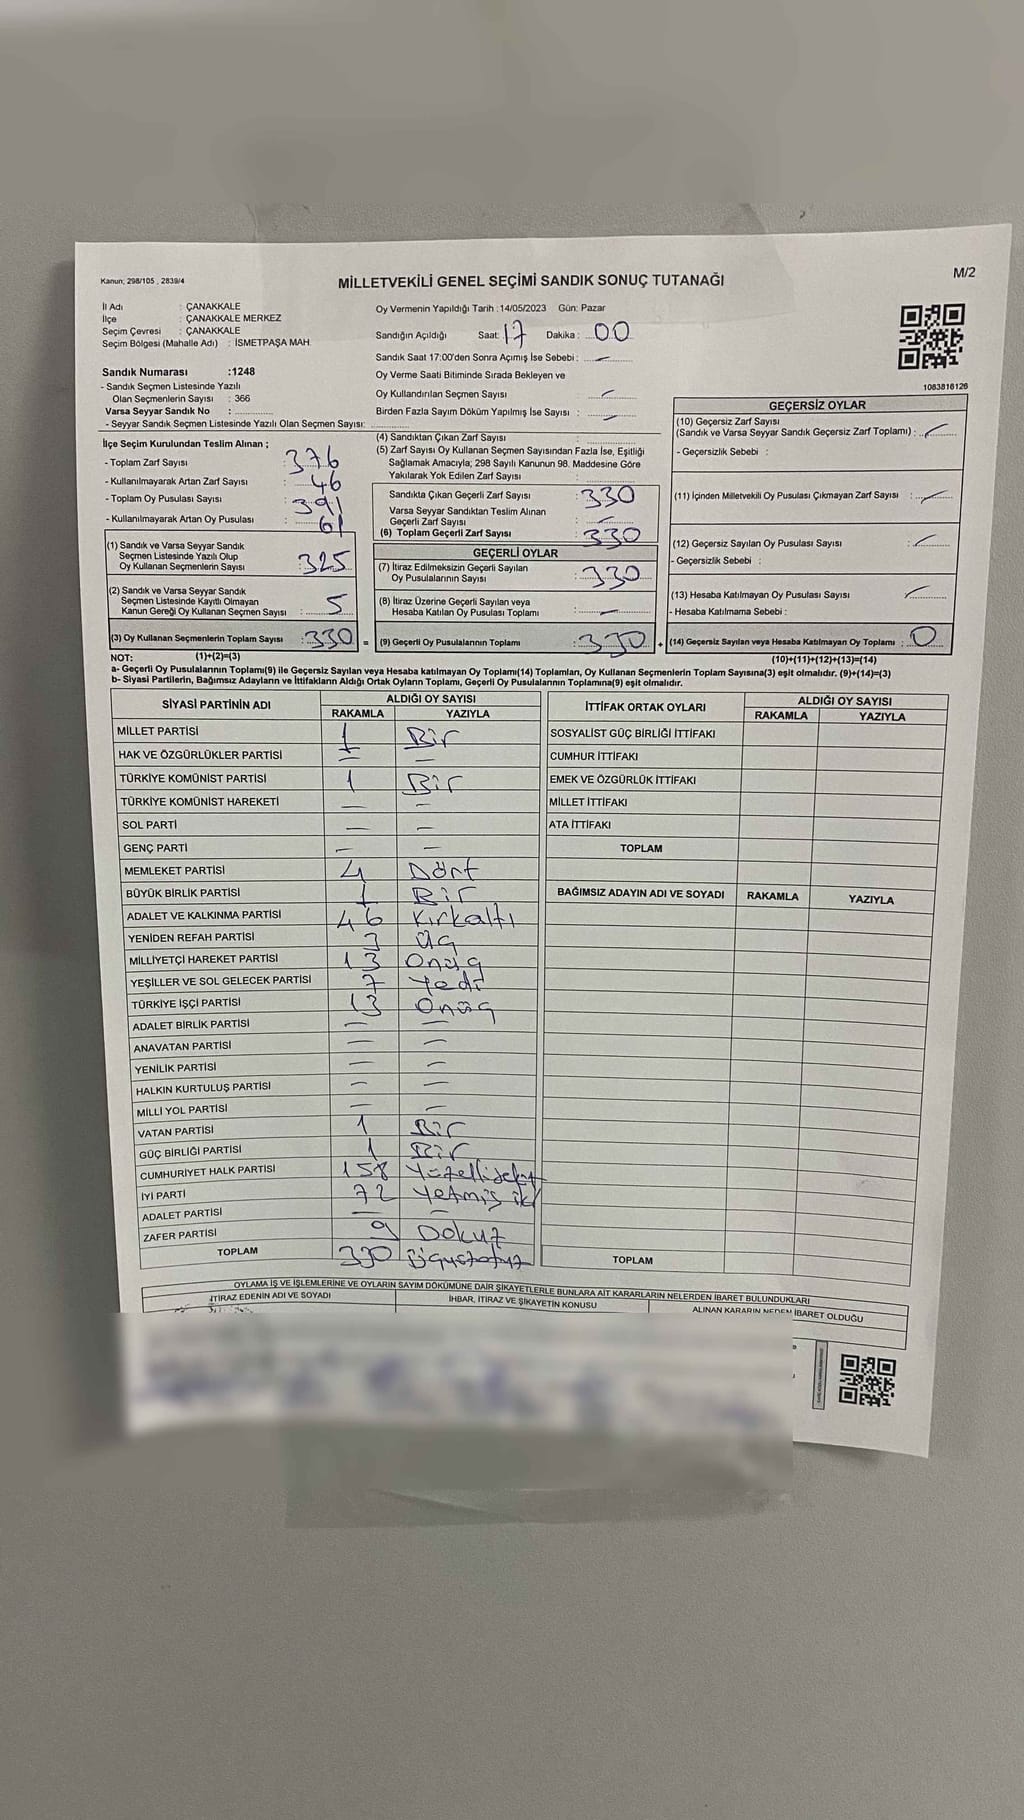 Kanun; 298/105 , 2839/4
MİLLETVEKİLİ GENEL SEÇİMİ SANDIK SONUÇ TUTANAĞI
M/2
İl Adı : ÇANAKKALE
İlçe : ÇANAKKALE MERKEZ
Seçim Çevresi : ÇANAKKALE
Seçim Bölgesi (Mahalle Adı) : İSMETPAŞA MAH.
Oy Vermenin Yapıldığı Tarih : 14/05/2023 Gün: Pazar
Sandığın Açıldığı Saat: 17 Dakika : 00
Sandık Saat 17:00'den Sonra Açımış İse Sebebi : —
Oy Verme Saati Bitiminde Sırada Bekleyen ve
Oy Kullandırılan Seçmen Sayısı : —
Birden Fazla Sayım Döküm Yapılmış İse Sayısı : —
1083816126
Sandık Numarası :1248
- Sandık Seçmen Listesinde Yazılı
Olan Seçmenlerin Sayısı : 366
Varsa Seyyar Sandık No :
- Seyyar Sandık Seçmen Listesinde Yazılı Olan Seçmen Sayısı:
İlçe Seçim Kurulundan Teslim Alınan ;
- Toplam Zarf Sayısı : 376
- Kullanılmayarak Artan Zarf Sayısı : 46
- Toplam Oy Pusulası Sayısı : 391
- Kullanılmayarak Artan Oy Pusulası : 61
(1) Sandık ve Varsa Seyyar Sandık
Seçmen Listesinde Yazılı Olup
Oy Kullanan Seçmenlerin Sayısı : 325
(2) Sandık ve Varsa Seyyar Sandık
Seçmen Listesinde Kayıtlı Olmayan
Kanun Gereği Oy Kullanan Seçmen Sayısı : 5
(3) Oy Kullanan Seçmenlerin Toplam Sayısı : 330 =
(4) Sandıktan Çıkan Zarf Sayısı :
(5) Zarf Sayısı Oy Kullanan Seçmen Sayısından Fazla İse, Eşitliği
Sağlamak Amacıyla; 298 Sayılı Kanunun 98. Maddesine Göre
Yakılarak Yok Edilen Zarf Sayısı :
Sandıkta Çıkan Geçerli Zarf Sayısı : 330
Varsa Seyyar Sandıktan Teslim Alınan
Geçerli Zarf Sayısı : —
(6) Toplam Geçerli Zarf Sayısı : 330
GEÇERLİ OYLAR
(7) İtiraz Edilmeksizin Geçerli Sayılan
Oy Pusulalarının Sayısı : 330
(8) İtiraz Üzerine Geçerli Sayılan veya
Hesaba Katılan Oy Pusulası Toplamı : —
(9) Geçerli Oy Pusulalarının Toplamı : 330 +
GEÇERSİZ OYLAR
(10) Geçersiz Zarf Sayısı
(Sandık ve Varsa Seyyar Sandık Geçersiz Zarf Toplamı) : —
- Geçersizlik Sebebi :
(11) İçinden Milletvekili Oy Pusulası Çıkmayan Zarf Sayısı : —
(12) Geçersiz Sayılan Oy Pusulası Sayısı : —
- Geçersizlik Sebebi :
(13) Hesaba Katılmayan Oy Pusulası Sayısı : —
- Hesaba Katılmama Sebebi :
(14) Geçersiz Sayılan veya Hesaba Katılmayan Oy Toplamı : 0
NOT: (1)+(2)=(3) (10)+(11)+(12)+(13)=(14)
a- Geçerli Oy Pusulalarının Toplamı(9) ile Geçersiz Sayılan veya Hesaba katılmayan Oy Toplamı(14) Toplamları, Oy Kullanan Seçmenlerin Toplam Sayısına(3) eşit olmalıdır. (9)+(14)=(3)
b- Siyasi Partilerin, Bağımsız Adayların ve İttifakların Aldığı Ortak Oyların Toplamı, Geçerli Oy Pusulalarının Toplamına(9) eşit olmalıdır.
SİYASİ PARTİNİN ADI ALDIĞI OY SAYISI
RAKAMLA YAZIYLA
MİLLET PARTİSİ 1 Bir
HAK VE ÖZGÜRLÜKLER PARTİSİ — —
TÜRKİYE KOMÜNİST PARTİSİ 1 Bir
TÜRKİYE KOMÜNİST HAREKETİ — —
SOL PARTİ — —
GENÇ PARTİ — —
MEMLEKET PARTİSİ 4 Dört
BÜYÜK BİRLİK PARTİSİ 1 Bir
ADALET VE KALKINMA PARTİSİ 46 Kırkaltı
YENİDEN REFAH PARTİSİ 3 Üç
MİLLİYETÇİ HAREKET PARTİSİ 13 Onüç
YEŞİLLER VE SOL GELECEK PARTİSİ 7 Yedi
TÜRKİYE İŞÇİ PARTİSİ 13 Onüç
ADALET BİRLİK PARTİSİ — —
ANAVATAN PARTİSİ — —
YENİLİK PARTİSİ — —
HALKIN KURTULUŞ PARTİSİ — —
MİLLİ YOL PARTİSİ — —
VATAN PARTİSİ 1 Bir
GÜÇ BİRLİĞİ PARTİSİ 1 Bir
CUMHURİYET HALK PARTİSİ 158 Yüzellisekiz
İYİ PARTİ 72 Yetmiş iki
ADALET PARTİSİ — —
ZAFER PARTİSİ 9 Dokuz
TOPLAM 330 Üçyüzotuz
İTTİFAK ORTAK OYLARI ALDIĞI OY SAYISI
RAKAMLA YAZIYLA
SOSYALİST GÜÇ BİRLİĞİ İTTİFAKI
CUMHUR İTTİFAKI
EMEK VE ÖZGÜRLÜK İTTİFAKI
MİLLET İTTİFAKI
ATA İTTİFAKI
TOPLAM
BAĞIMSIZ ADAYIN ADI VE SOYADI RAKAMLA YAZIYLA
TOPLAM
OYLAMA İŞ VE İŞLEMLERİNE VE OYLARIN SAYIM DÖKÜMÜNE DAİR ŞİKAYETLERLE BUNLARA AİT KARARLARIN NELERDEN İBARET BULUNDUKLARI
İTİRAZ EDENİN ADI VE SOYADI İHBAR, İTİRAZ VE ŞİKAYETİN KONUSU ALINAN KARARIN NEDEN İBARET OLDUĞU